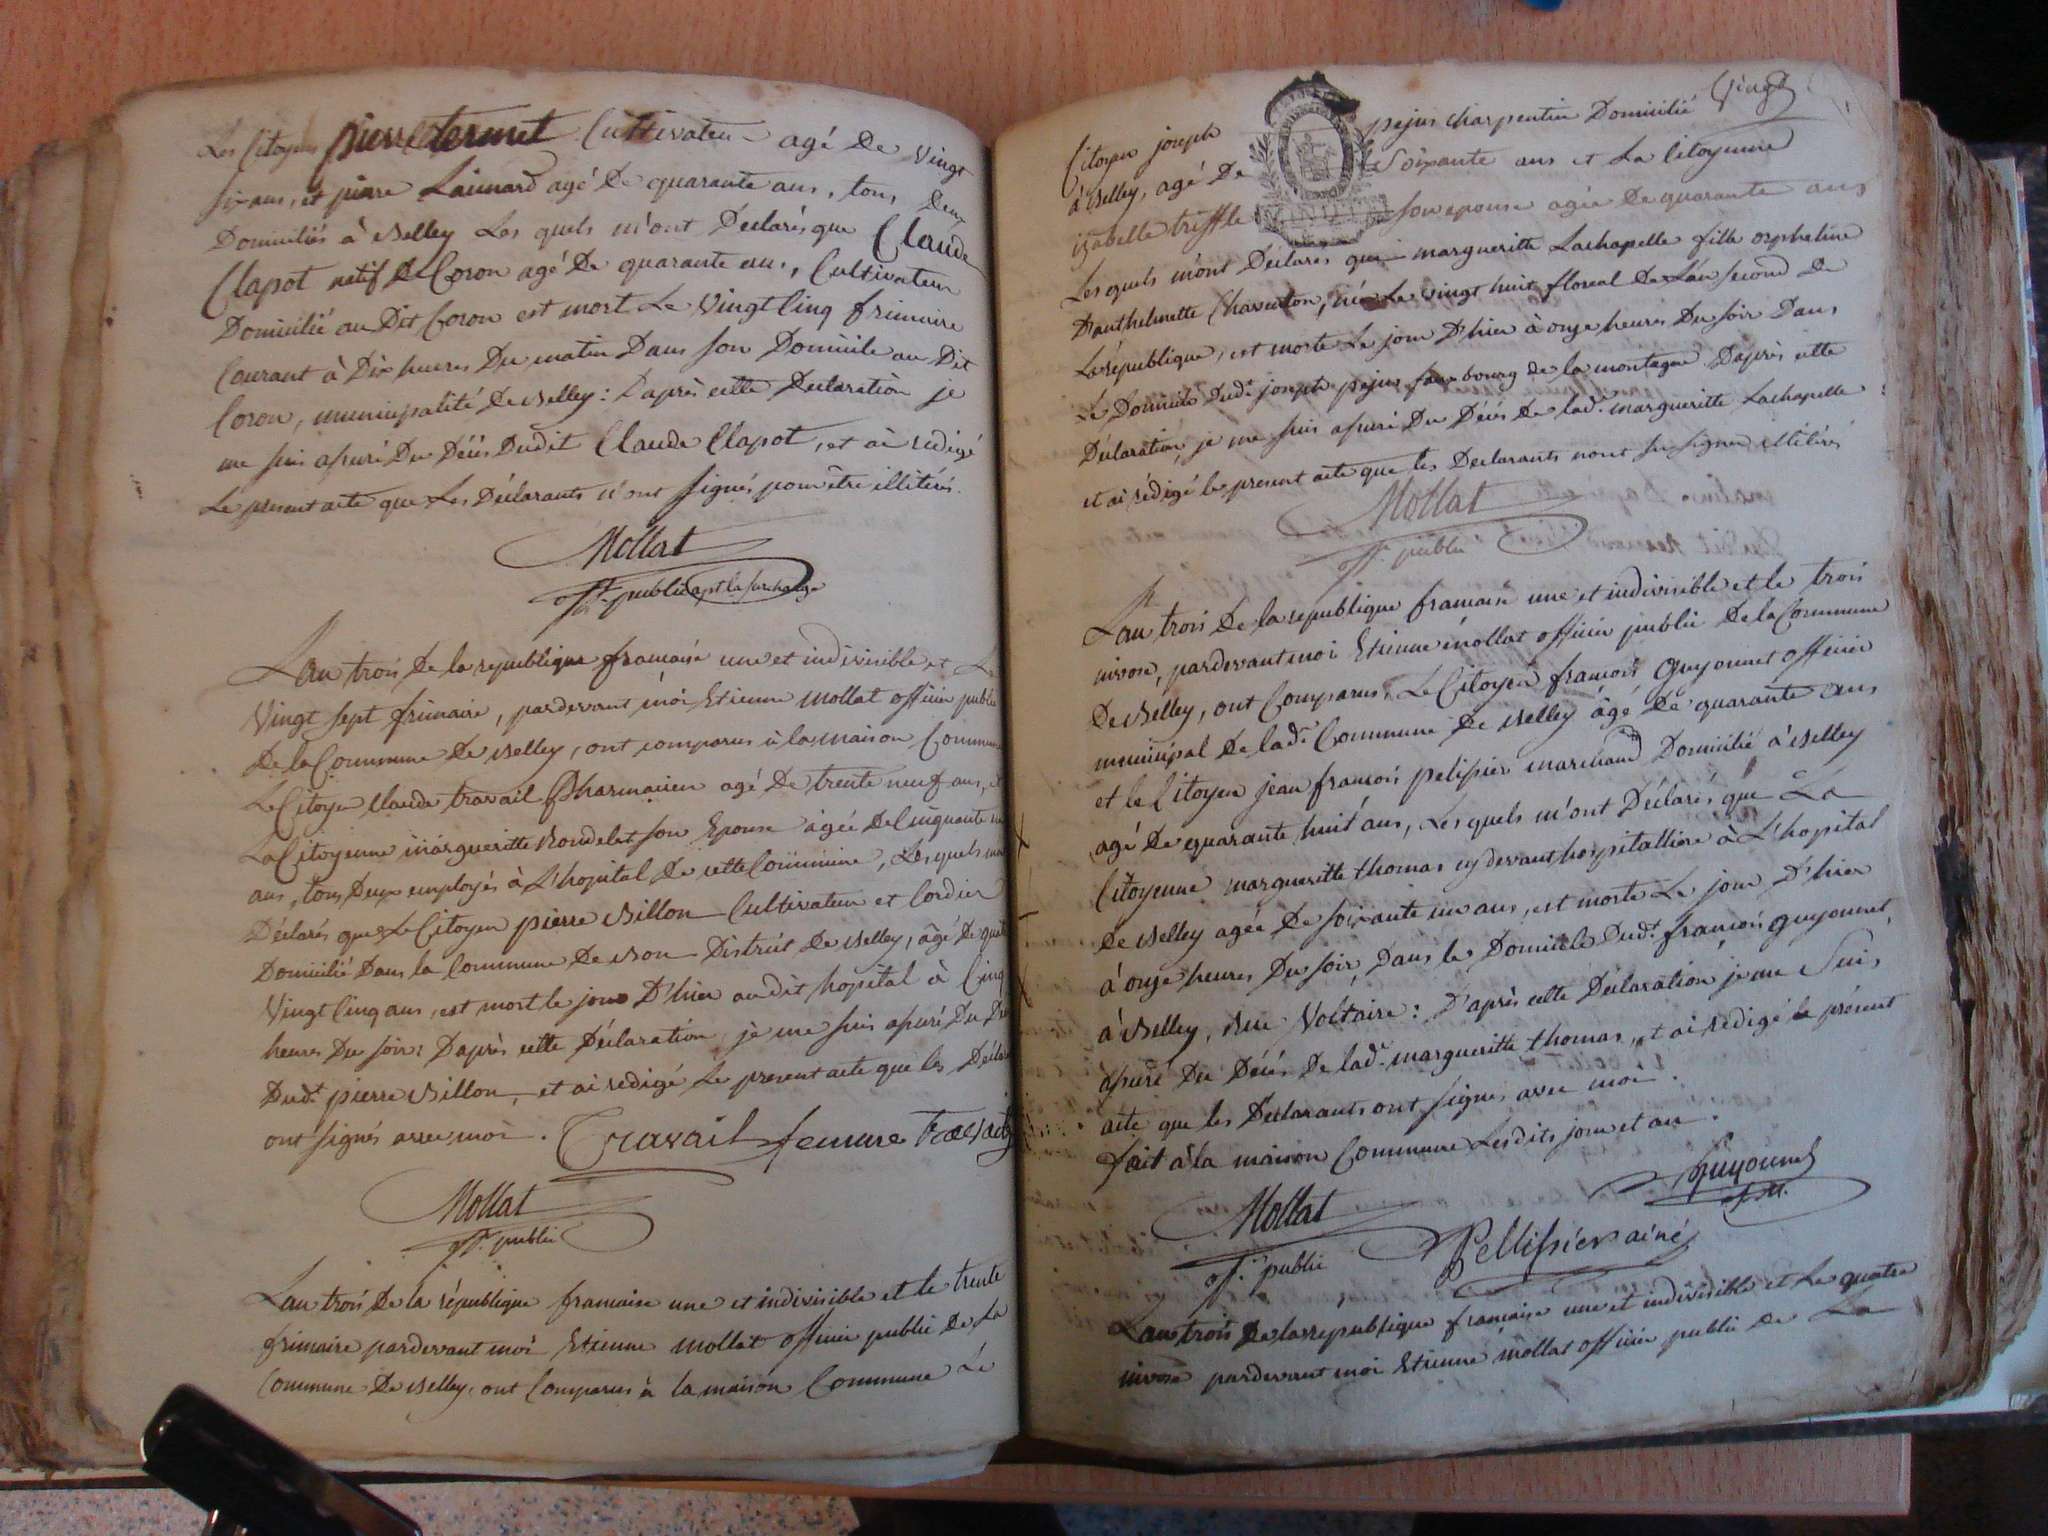 Les Citoyens pierre termet Cultivateur agé De vingt
six ans, et pierre Laimard agé De quarante ans, tous Deux
Domiciliés à Belley Les quels m'ont Déclarés que Claude
Clapot natif De Coron agé De quarante ans, Cultivateur
Domicilié au Dit Coron est mort Le vingt Cinq frimaire
Courant à Dix heures Du matin Dans son Domicile au Dit
Coron, municipalité De Belley : D'après cette Déclaration je
me suis assuré Du Décès Dudit Claude Clapot, et ai rédigé
Le present acte que Les Déclarants n'ont signés pour être illitérés.
Mollat
off. public apt la surcharge
L'an trois De la republique francaise une et indivisible et Le
Vingt sept frimaire, pardevant moi Etienne mollat officier public
De la Commune De Belley, ont comparus à la maison Commune
Le Citoyen Claude travail Pharmacien agé De trente neuf ans, et
La Citoyenne margueritte Rondelet son Epouse agée De Cinquante
ans, tous Deux employés à L'hopital De cette Commune, Les quels m'ont
Déclarés que Le Citoyen pierre Billon Cultivateur et Cordier
Domicilié Dans la Commune De Bon District De Belley, âgé De quatre
Vingt Cinq ans, est mort le jour D'hier au dit hopital à Cinq
heures Du soir : D'après cette Déclaration je me suis assuré Du
Dud. pierre Billon, et ai redigé Le present acte que les
ont signés avec moi. Travail femme Travail
Mollat
off. public
L'an trois De la république francaise une et indivisible et le trente
frimaire pardevant moi Etienne mollat officier public De La
Commune De Belley, ont Comparus à la maison Commune Le
Vingt
Citoyen joseph pejus charpentier Domicilié
à Belley, agé De Soixante ans et La Citoyenne
izabelle triffle son epouse agée De quarante ans
Les quels m'ont Déclarés que margueritte Lachapelle fille orpheline
D'anthelmette Chaventon, née Le vingt huit floreal De L'an second De
La république, est morte Le jour D'hier à onze heures Du soir Dans
Le Domicile Dud. joseph pejus faubourg de la montagne D'après cette
Déclaration, je me suis assuré Du Décès De lad. margueritte Lachapelle
et ai rédigé le present acte que les Déclarants n'ont su signer illitérés
Mollat
off. public
L'an trois De la republique francaise une et indivisible et le trois
nivose, pardevant moi Etienne mollat officier public De la Commune
De Belley, ont Comparus, Le Citoyen francois Guyonnet officier
municipal De lad. Commune De Belley âgé De quarante ans
et le Citoyen jean francois pelissier marchand Domicilié à Belley
agé De quarante huit ans, Les quels m'ont Déclarés que La
Citoyenne margueritte thomas cydevant hospitalliere à L'hopital
De Belley agée De soixante un ans, est morte Le jour D'hier
à onze heures Du soir, Dans le Domicile Dud. francois guyonnet,
à Belley, Rue Voltaire : D'après cette Déclaration je me Suis
assuré Du Décès De lad. margueritte thomas, et ai redigé le présent
acte que les Déclarants ont signés avec moi.
fait à la maison Commune Lesdits jour et an.
Guyonnet
o. m.
Mollat
off. public
Pellissier ainé
L'an trois De la republique francaise une et indivisible et Le quatre
nivose pardevant moi Etienne mollat officier public De La